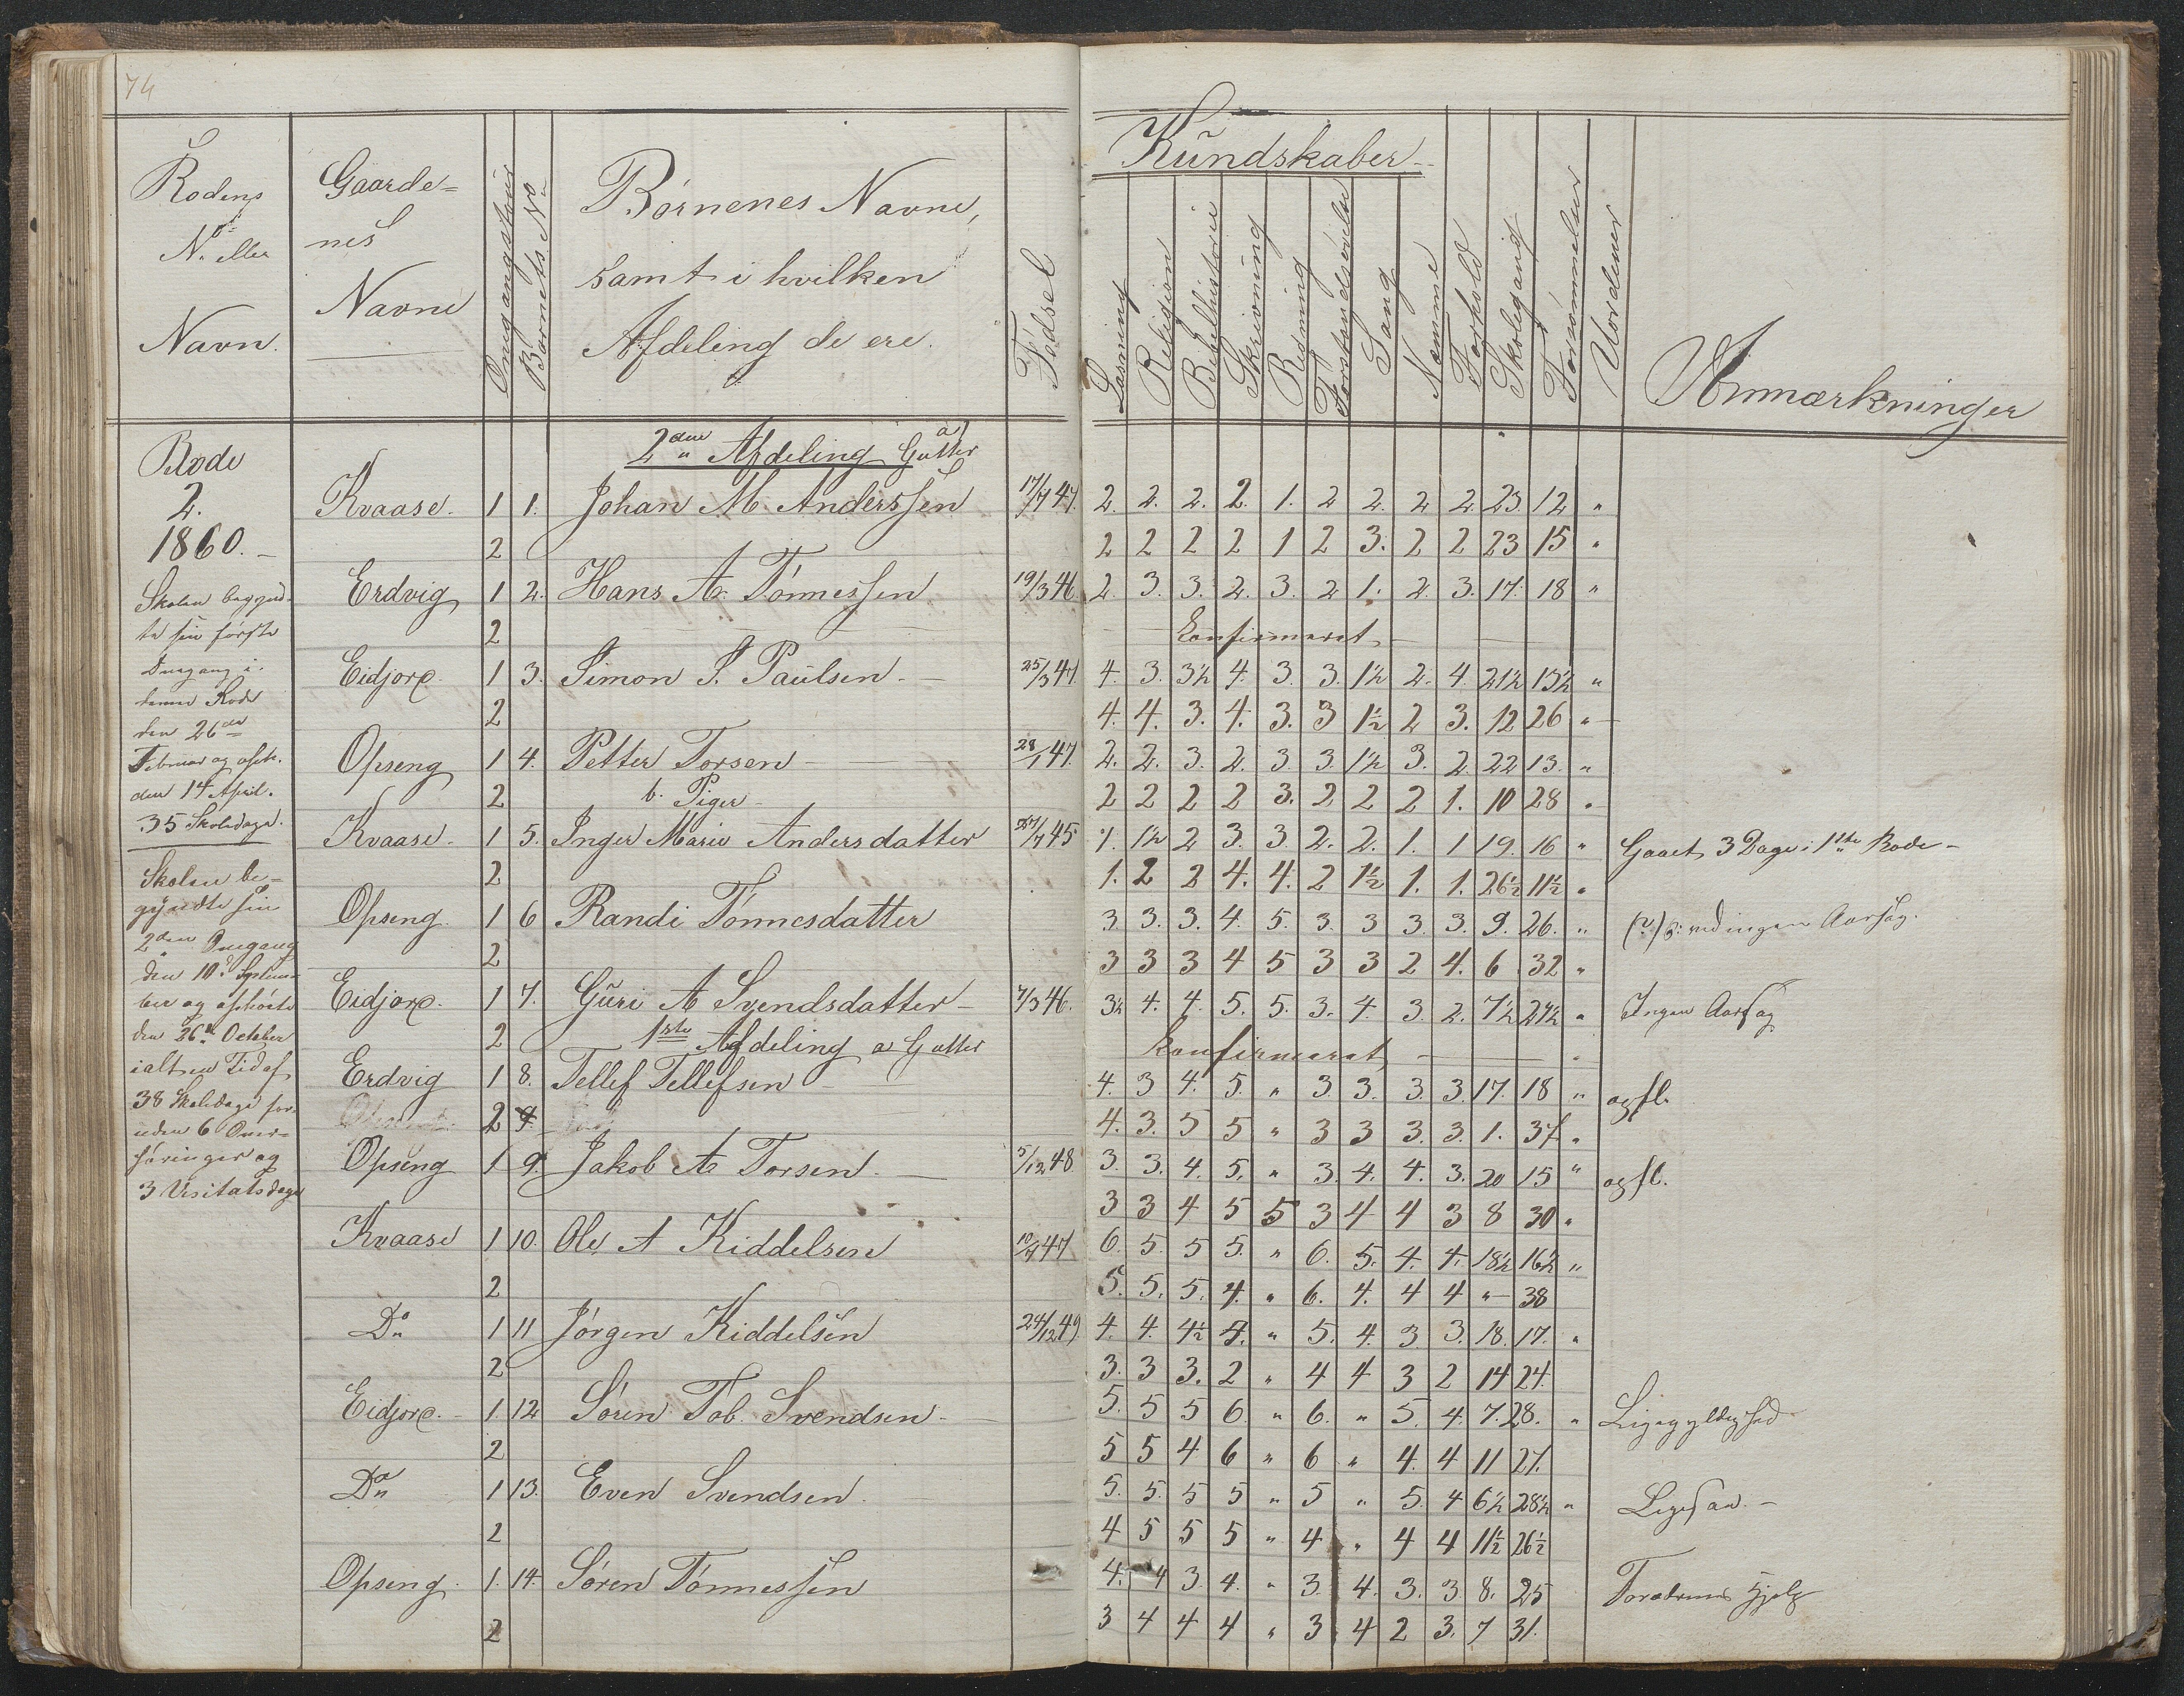 74
Rodens No eller Navn.
Gaarde=nes Navne
Omgangstour
Barnets No
Børnenes Navne, samt i hvilken Afdeling de ere.
Fødsel
Kundskaber
Læsning
Religion
Bibelhistorie
Skrivning
Regning
Forstandsøvelse
Sang
Nemme
Forhold
Skolegang
Forsømmelser
Vordener
Anmærkninger
Rode
2.
1860.
Skolen begynd-
te sin første
Omgang i
denne Rode
den 26de
Februar og oph.
den 14 April.
35 Skoledage.
Skolen be=
gyndte sin
2den Omgang
den 10de Septem-
ber og ophørte
den 26de October
ialt en Tid af
38 Skoledage for-
uden 6 Over-
høringer og
3 Visitatsdage
2den Afdeling a) Gutter
Kvaase. 1 1. Johan M Anderssen 17/7 47. 2. 2. 2. 2. 1. 2 2. 2 2. 23. 12 "
2 2 2 2 2 1 2 3. 2 2 23 15 "
Erdvig 1 2. Hans A Tønnessen 19/3 46 2. 3. 3. 2. 3. 2 1. 2. 3. 17. 18 "
2 Konfirmeret
Eidjord. 1 3. Simon S. Paulsen 25/3 47 4. 3. 3½ 4. 3. 3. 1½ 2. 4. 21½ 13½ "
2 4. 4. 3. 4. 3. 3 1½ 2 3. 12 26 "
Opseng 1 4. Petter Torsen 28/1 47. 2. 2. 3. 2. 3. 3. 1½ 3. 2. 22 13. "
2 b. Piger 2 2 2 2 3. 2 2 2 1. 10 28 "
Kvaase. 1 5. Inger Marie Andersdatter 27/7 45 1. 1½ 2 3. 3. 2. 2. 1. 1 19. 16 " Gaaet 3 Dage i 1ste Rode
2 1. 2 2 4. 4. 2 1½ 1. 1. 26½ 11½ "
Opseng. 1 6 Randi Tønnesdatter 3 3. 3. 4. 5. 3. 3 3. 3. 9. 26. " ved ingen Aarsag.
2 3 3 3 4 5 3 3 2 4. 6 32 "
Eidjord. 1 7. Guri A Svendsdatter 7/3 46. 3½ 4. 4. 5. 5. 3. 4. 3. 2. 7½ 27½ " Ingen Aarsag
2 1ste Afdeling a Gutter Konfirmeret
Erdvig 1 8. Tellef Tellefsen 4. 3 4. 5. " 3. 3. 3. 3. 17. 18 " opfl.
2 9. 4. 3. 5 5 " 3 3 3. 3. 1. 37. "
Opseng 1 9. Jakob A Torsen 5/12 48 3. 3. 4. 5. " 3. 4. 4. 3. 20 15 " opfl.
3 3 4 5 5 3 4 4 3 8 30 "
Kvaase 1 10. Ole A Kiddelsen 10/7 47 6. 5. 5 5. " 6. 5. 4. 4. 18½ 16½ "
2 5. 5. 5. 4. " 6. 4. 4 4 " 38
Do 1 11 Jørgen Kiddelsen 24/12 49. 4. 4. 4½ 4. " 5. 4. 3 3. 18. 17. "
2 3. 3 3. 2 " 4 4 3 2 14 24.
Eidjord. 1. 12 Søren Tob. Svendsen 5. 5 5 6. " 6. " 5. 4. 7. 28. " Ligegyldighed
2 5 5 4 6 " 6 " 4. 4 11 27.
Do 1 13. Even Svendsen 5. 5. 5 5 " 5 " 5. 4 6½ 28½ " Ligesaa.
2 4 5 5 5 " 4 " 4 4 11½ 26½
Opseng. 1. 14. Søren Tønnessen 4. 4 3. 4. " 3. 4. 3. 3. 8. 25 Forældrenes Hjelp
2 3 4 4 4 " 3 4 2 3. 7 31.